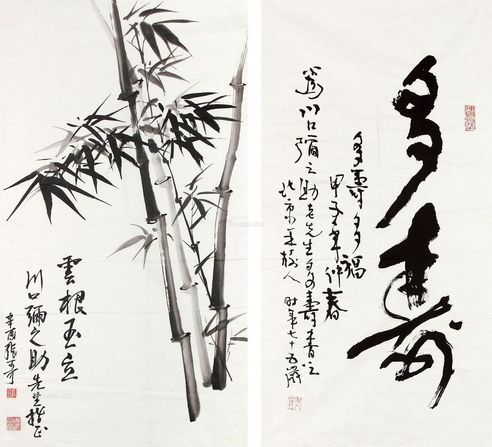 雲根玉立
川口彌之助先生正
辛酉張
多壽
多壽多福
甲子年仲春
為川口彌之助老先生多壽書之
北京人時年七十五歲